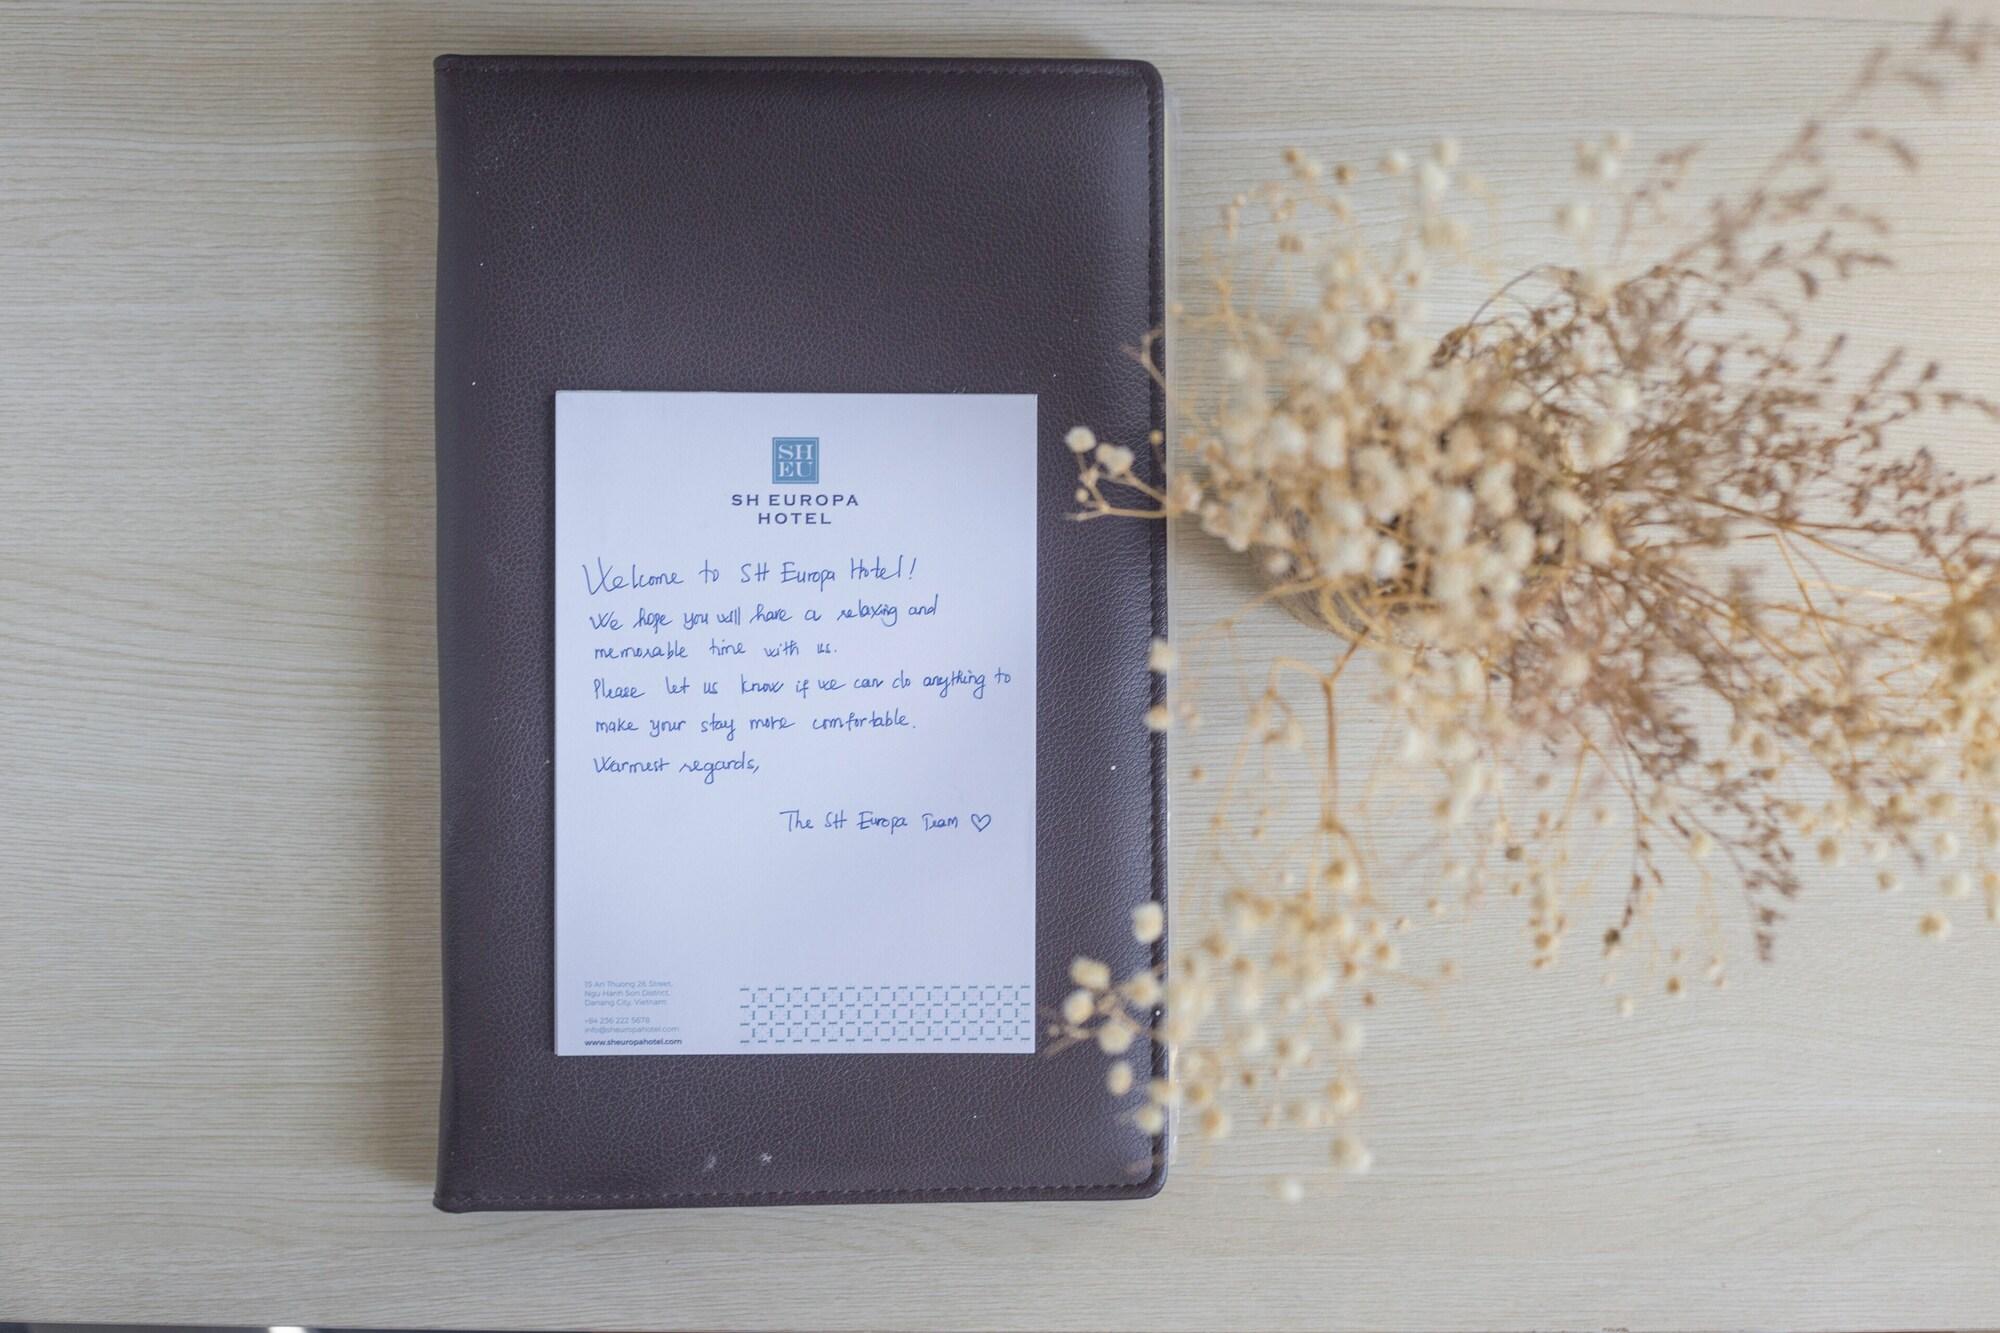 SH
EU
SH EUROPA
HOTEL
Welcome to SH Europa Hotel!
We hope you will have a relaxing and
memorable time with us.
Please let us know if we can do anything to
make your stay more comfortable.
Warmest regards,
The SH Europa Team ♡
15 An Thuong 26 Street,
Ngu Hanh Son District,
Danang City, Vietnam
+84 236 222 5678
info@sheuropahotel.com
www.sheuropahotel.com